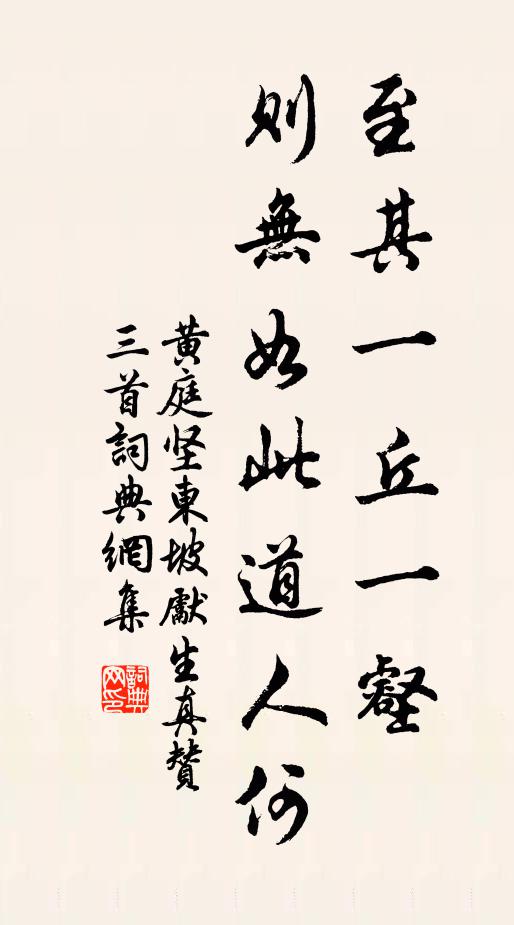 至其一丘一壑
則無如此道人何
黄庭坚東坡獻生真贊
三首詞典網集
詞典網印